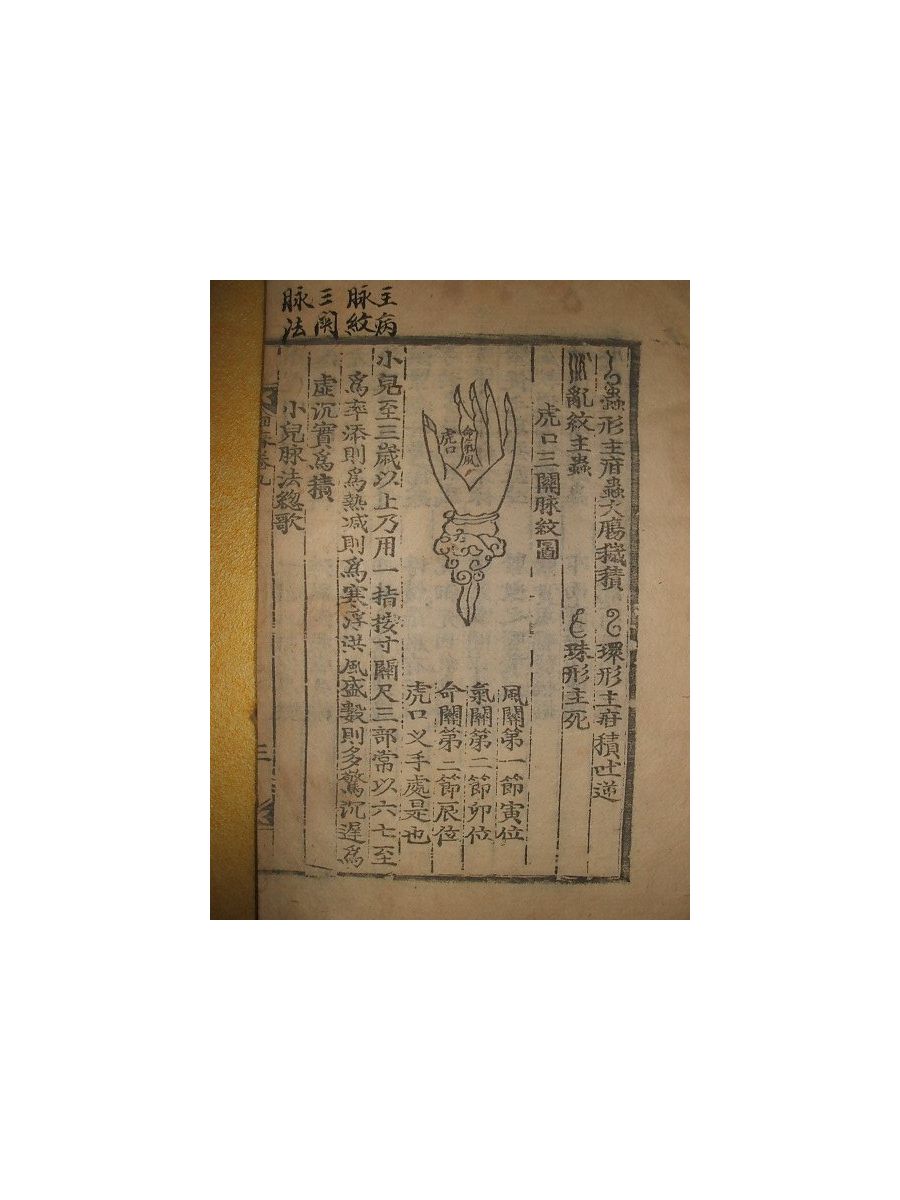 主病
脉紋
三関
脉法
蟲形主疳蟲大腸穢積 環形主疳積吐逆
亂紋主蟲 珠形主死
虎口三關脉紋圖
命氣風
虎口
風關第一節寅位
氣關第二節卯位
命關第二節辰位
虎口乂手處是也
小兒至三歲以上乃用一指按寸關尺三部常以六七至
爲率添則爲熱减則爲寒浮洪風盛數則多驚沉遲爲
虛沉實爲積
小兒脉法總歌
三